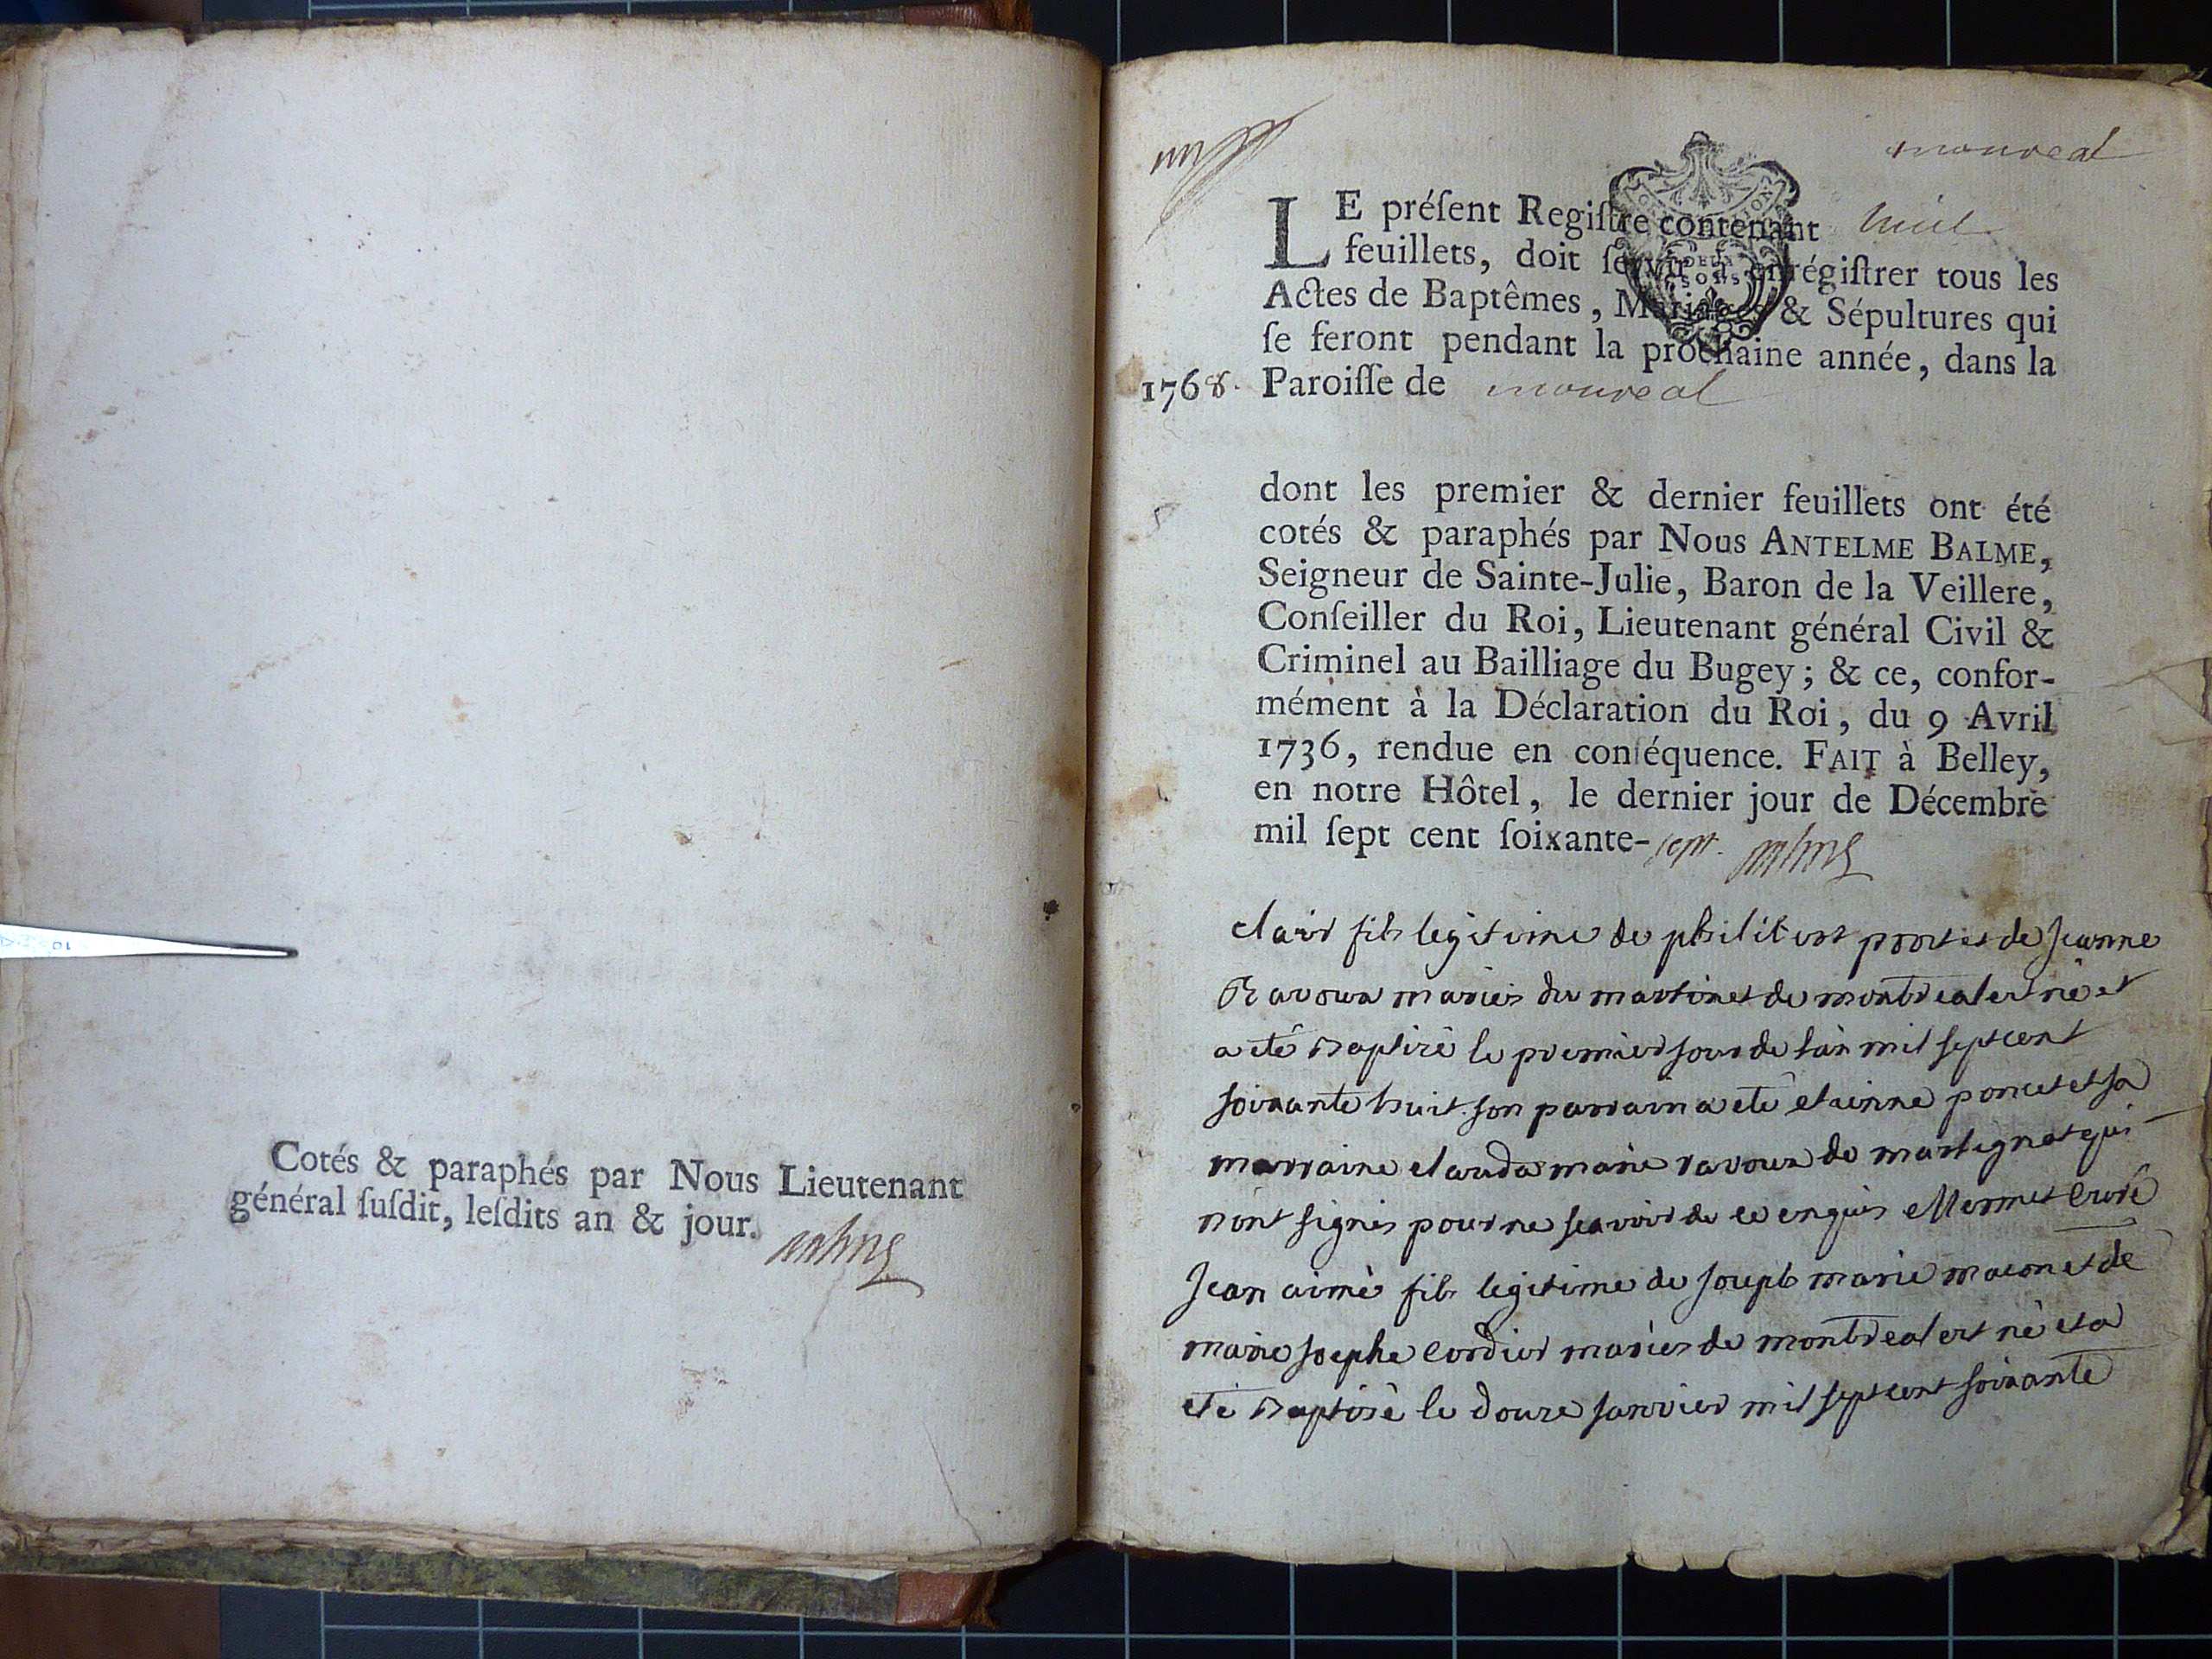 Cotés & paraphés par Nous Lieutenant
général ſuſdit, leſdits an & jour.
montreal
LE préſent Regiſtre contenant huit
feuillets, doit ſervir à enrégiſtrer tous les
Actes de Baptêmes, Mariages & Sépultures qui
ſe feront pendant la prochaine année, dans la
1768. Paroiſſe de montreal
dont les premier & dernier feuillets ont été
cotés & paraphés par Nous ANTELME BALME,
Seigneur de Sainte-Julie, Baron de la Veillere,
Conſeiller du Roi, Lieutenant général Civil &
Criminel au Bailliage du Bugey; & ce, confor-
mément à la Déclaration du Roi, du 9 Avril
1736, rendue en conſéquence. FAIT à Belley,
en notre Hôtel, le dernier jour de Décembre
mil ſept cent ſoixante-sept.
clair fils legitime de philibert et de Jeanne
Ravoux mariés du martinet de montreal est né et
a eté baptisé le premier jour de l'an mil sept cent
soixante huit. son parrain a eté etienne poncet et sa
marraine clauda marie ravoux de martignat qui
n'ont signés pour ne scavoir de ce enquis Mermet Curé
Jean aimé fils legitime de joseph marie macon et de
marie josephe cordier mariés de montreal est né et a
eté baptisé le douze janvier mil sept cent soixante